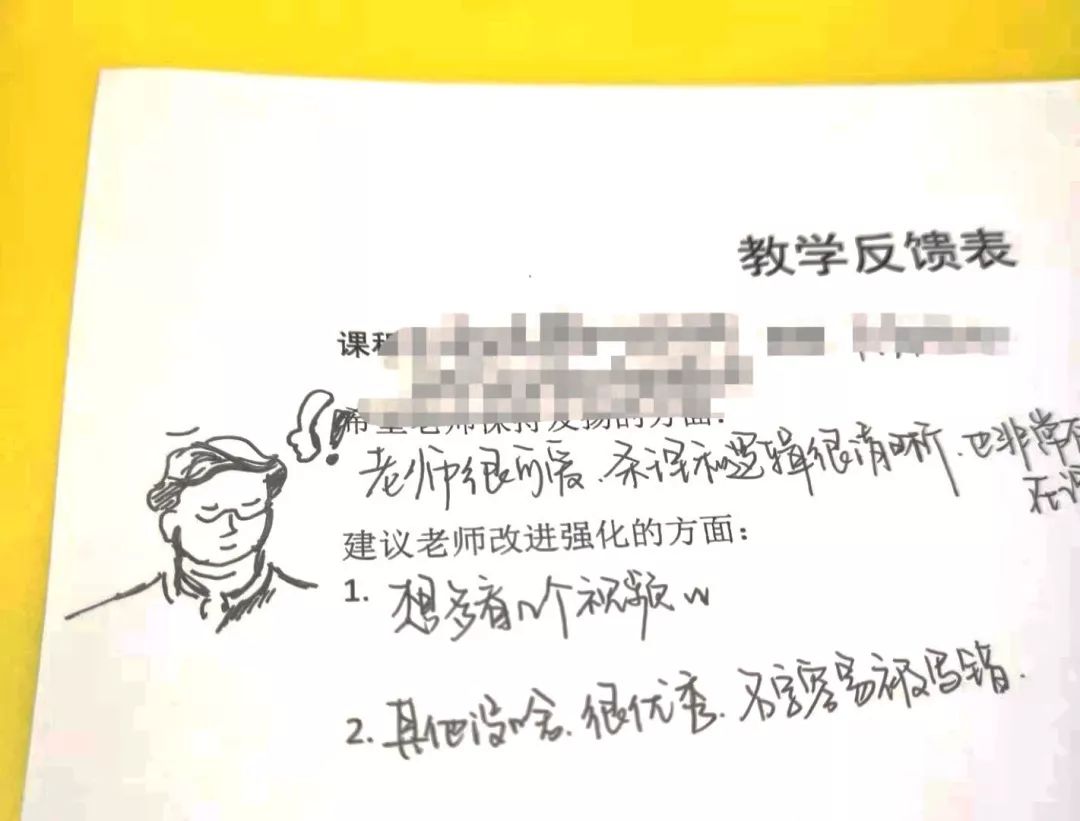 教学反馈表
课程
希望老师保持发扬的方面:
老师很可爱、条理和逻辑很清晰、也非常
在
建议老师改进强化的方面:
1. 想多看几个视频 w
2. 其他没啥、很优秀、名字容易被写错.